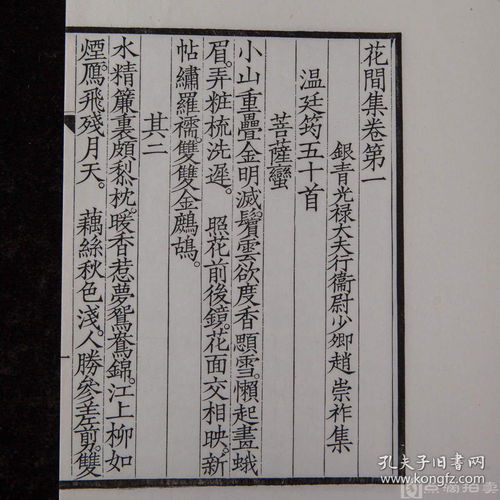 花間集卷第一
銀青光禄大夫行衞尉少卿趙崇祚集
温廷筠五十首
菩薩蠻
小山重疊金明滅。鬢雲欲度香顋雪。懶起畫蛾
眉。弄粧梳洗遲。　照花前後鏡。花面交相映。新
帖繡羅襦。雙雙金鷓鴣。
其二
水精簾裏頗黎枕。暖香惹夢鴛鴦錦。江上柳如
煙。鴈飛殘月天。　藕絲秋色淺。人勝參差剪。雙
孔夫子旧书网
www.kongfz.com